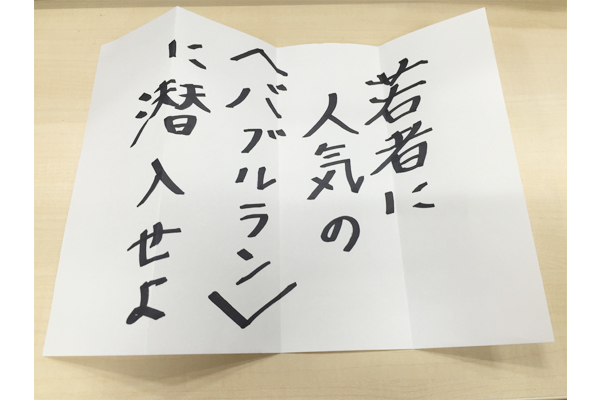 若者に
人気の
〈バブルラン〉
に潜入せよ